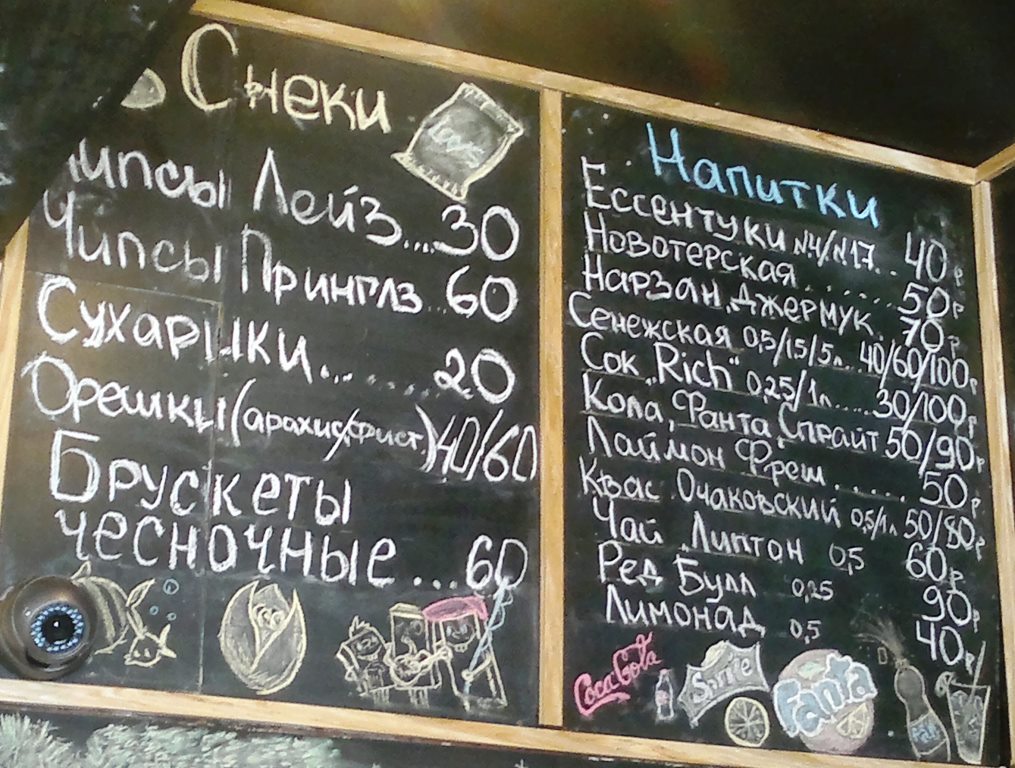 Снеки
Lay's
Чипсы Лейз...30
Чипсы Принглз...60
Сухарики........20
Орешки(арахис/фист.)40/60
Брускеты
чесночные...60
Напитки
Ессентуки №4/№17..40р
Новотерская.......50р
Нарзан, Джермук.70р
Сенежская 0,5/1,5/5л..40/60/100р
Сок „Rich" 0,25/1л.....30/100р
Кола, Фанта, Спрайт 50/90р
Лаймон Фреш......50р
Квас Очаковский 0,5/1л 50/80р
Чай Липтон 0,5 60р
Ред Булл 0,25 90р
Лимонад 0,5 40р
Coca Cola
Sprite
Fanta